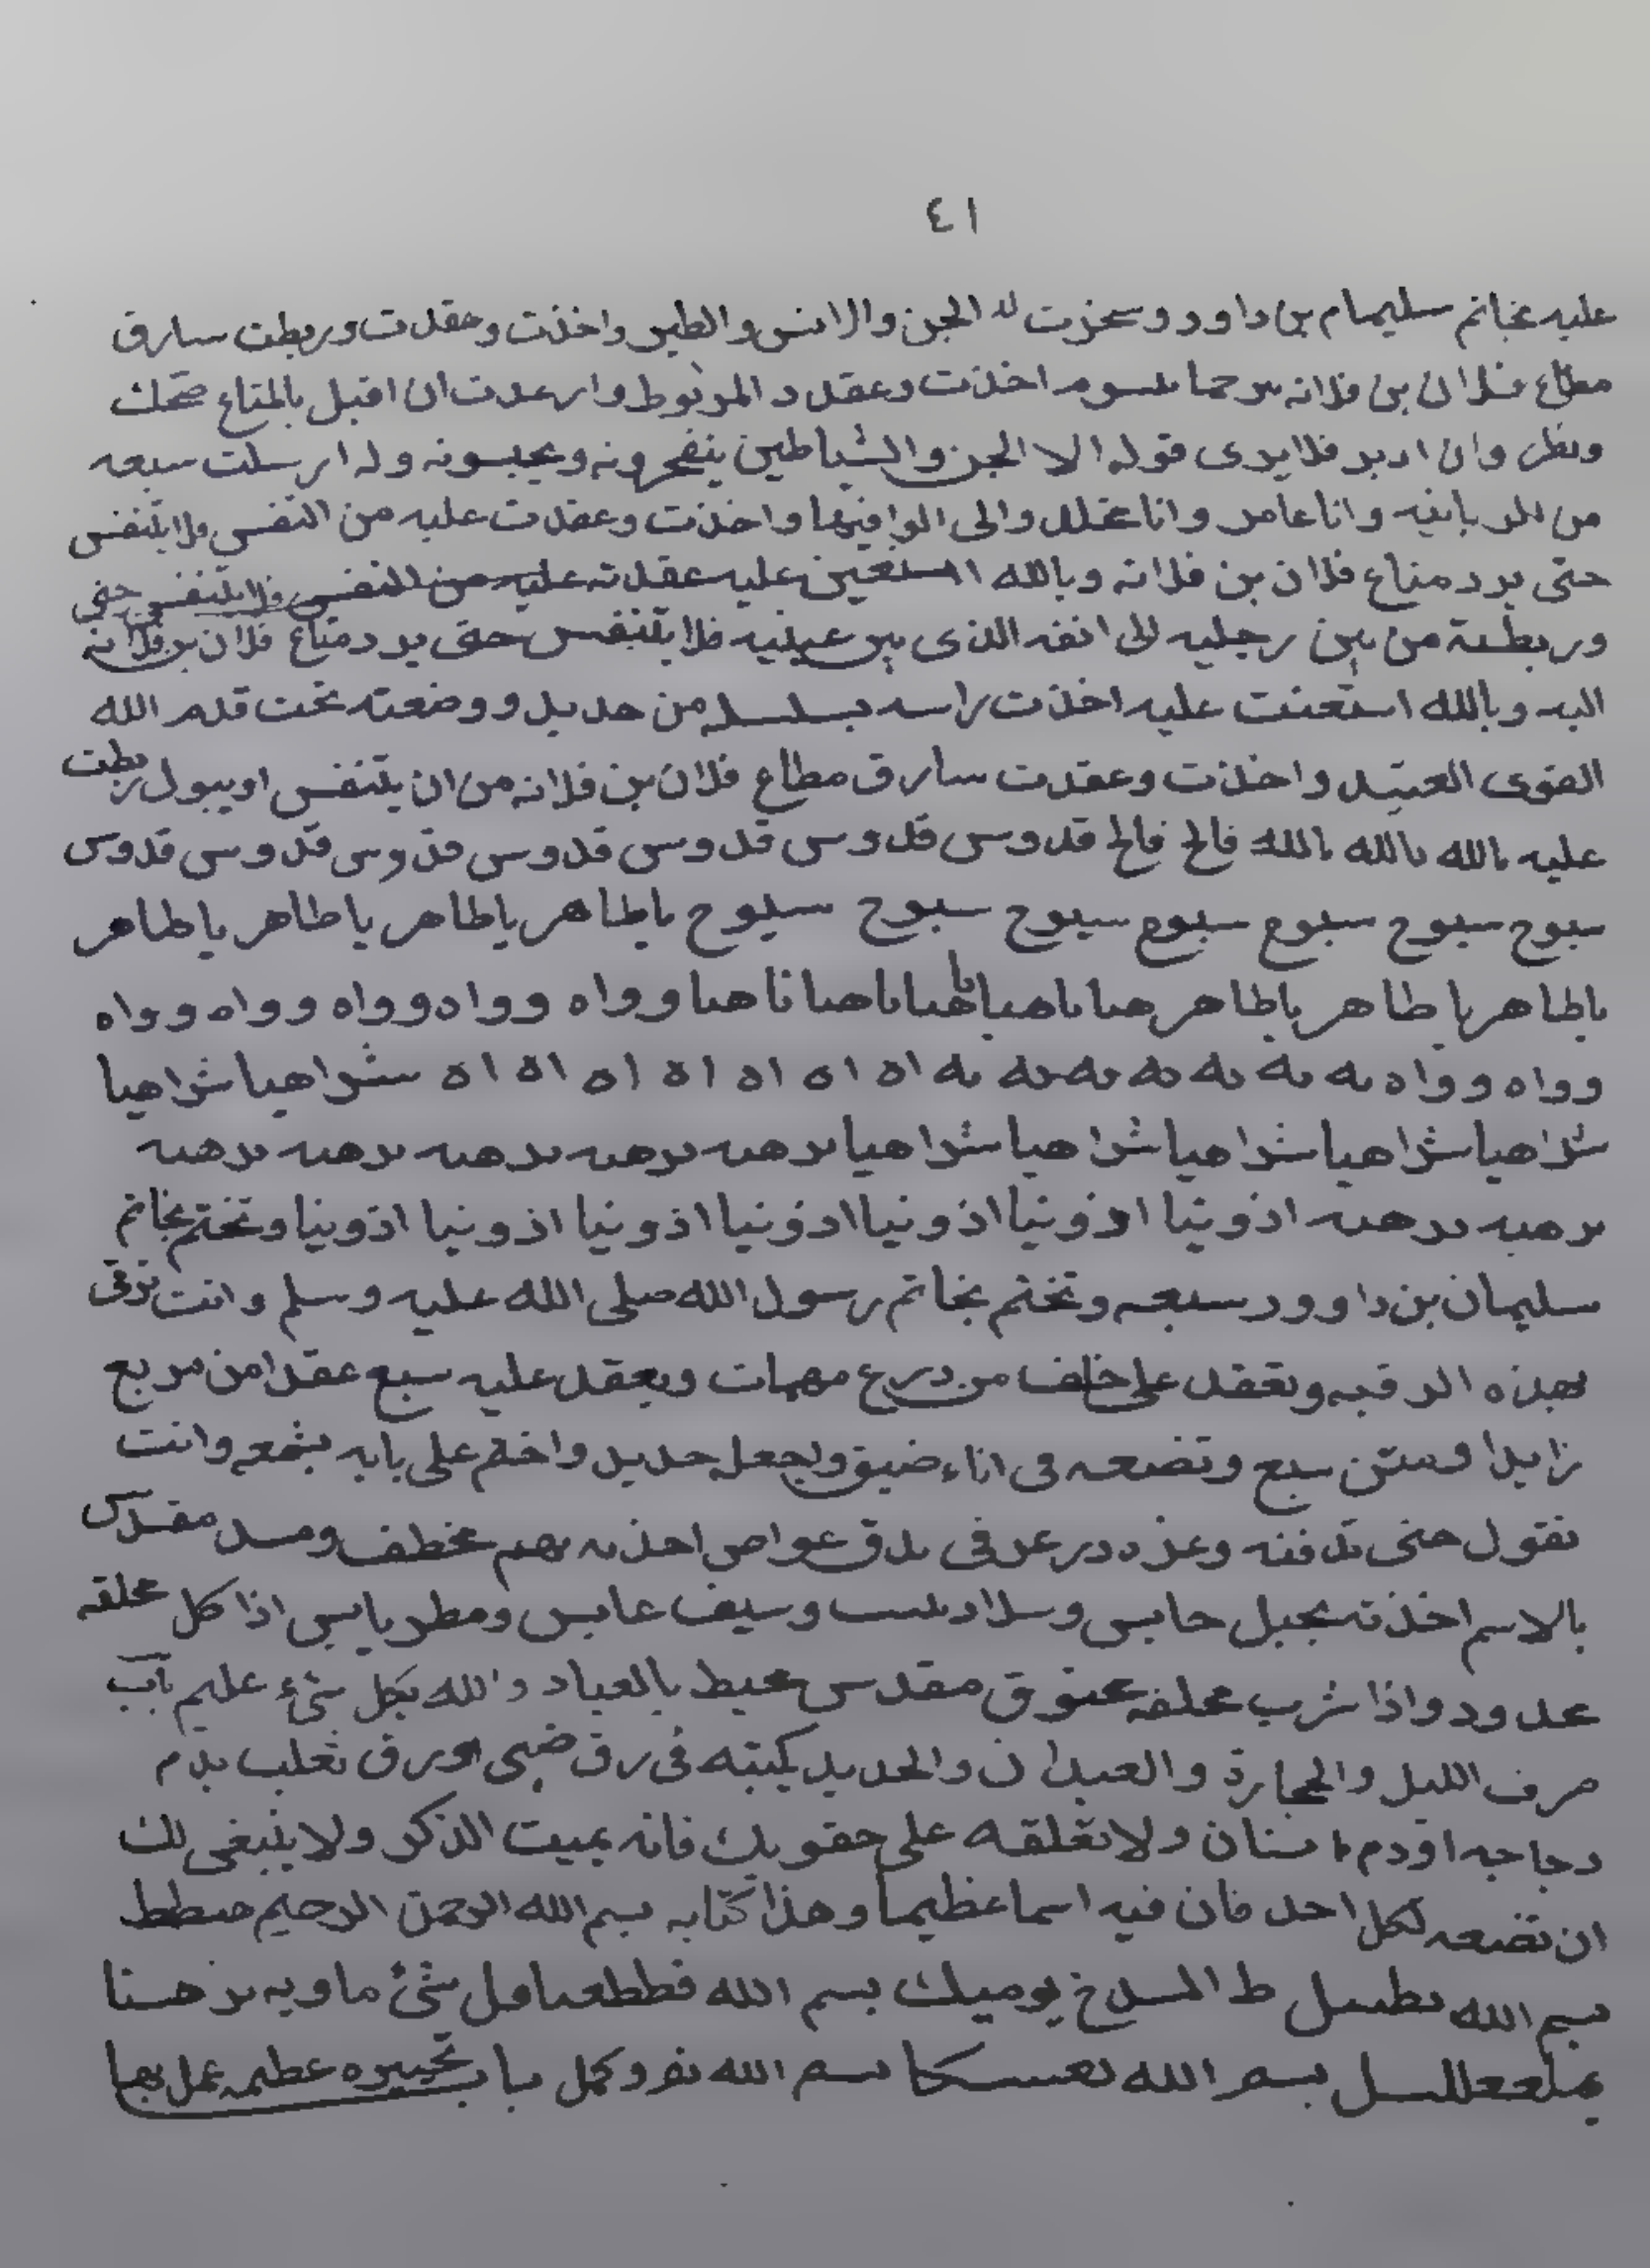 ٤١
عليه بخاتم سليمام بن داود وسخرت له الجن والانس والطير واخذت وعقدت وربطت سارق
مطاع فلان بن فلانه اخذت وعقد المربوط وارعدت ان اقبل بالمتاع ضحك
ونظر وان ادبر فلا يرى قوله الا الجن والشياطين ويجيبونه وله ارسلت سبعه
من وانا عامر وانا والى واخذت وعقدت عليه من النفس ولا يتنفس
حتى يرد متاع فلان بن فلانه وبالله استعين عليه عقدته عليه من النفس فلا يتنفس حتى
وربطته من بين رجليه الى انفه الذى بين عينيه فلا يتنفس حتى يرد متاع فلان بن فلانه
اليه وبالله استعنت عليه اخذت راسه بسلسله من حديد ووضعته تحت قدم الله
القوى العتيد واخذت وعقدت سارق مطاع فلان بن فلانه من ان يتنفس او يبول ربطت
عليه بالله بالله بالله فالح فالح قدوس قدوس قدوس قدوس قدوس قدوس قدوس
سبوح سبوح سبوح سبوح سبوح سبوح سبوح ياطاهر ياطاهر ياطاهر ياطاهر
ياطاهر ياطاهر ياطاهر هيا ياهيا ياهيا ياهيا ياهيا ياهيا وواه وواه وواه وواه وواه
وواه وواه يه يه يه يه يه يه يه اه اه اه اه اه اه اه شراهيا شراهيا
شراهيا شراهيا شراهيا شراهيا شراهيا برهيه برهيه برهيه برهيه برهيه
برهيه برهيه اذونيا اذونيا اذونيا اذونيا اذونيا اذونيا اذونيا وتختم بخاتم
سليمان بن داوود سبعه وتختم بخاتم رسول الله صلى الله عليه وسلم وانت ترقى
بهذه الرقيه وتعقد على خلف من درع مهمات ويعقد عليه سبع عقدا من مربع
زايدا وستن سبع وتضعه فى اناء ضيق ولجعله حديد واختم على بابه بشمعه وانت
تقول حتى تدفنه فى مقدس
بالاسم اخذته بجبل حابس وسيف عابس ومطر يابس اذا كل محلقه
عدود واذا شرب محلقه مقدس محيط بالعباد والله بكل شئ عليم باب
صرف الليل والحجارة والعيدان والحديد كتبته فى رق ضبى او رق ثعلب بدم
دجاجه او دم انسان ولا تعلقه على حقويك فانه يميت الذكر ولا ينبغى لك
ان تضعه لكل احد فان فيه اسما عظيما وهذا كتابه بسم الله الرحمن الرحيم
بسم الله ط يوميك بسم الله شئ
بسم الله بسم الله باب تحييره عظيمه عمل بها